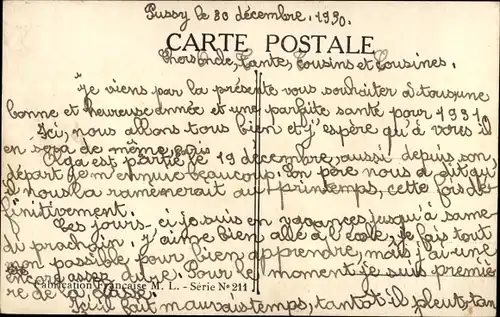 Pussy le 30 décembre. 1930.
CARTE POSTALE
Chers Oncle, Tante, Cousins et Cousines.
Je viens par la présente vous souhaiter à tous une
bonne et heureuse année et une parfaite santé pour 1931.
Ici, nous allons tous bien et j'espère qu'à vous il
en sera de même
Olga est partie le 19 décembre, aussi depuis son
départ je m'ennuie beaucoup. Son père nous a dit qu'
il nous la ramènerait au printemps, cette fois dé-
finitivement.
Ces jours-ci je suis en vacances, jusqu'à same-
di prochain. J'aime bien allé à l'école, je fais tout
mon possible, pour bien apprendre, mais j'ai une
encore assez dure. Pour le moment je suis premiè
Fabrication Française M. L. - Série N° 211
re de la classe.
Ici il fait mauvais temps, tantôt il pleut, tan